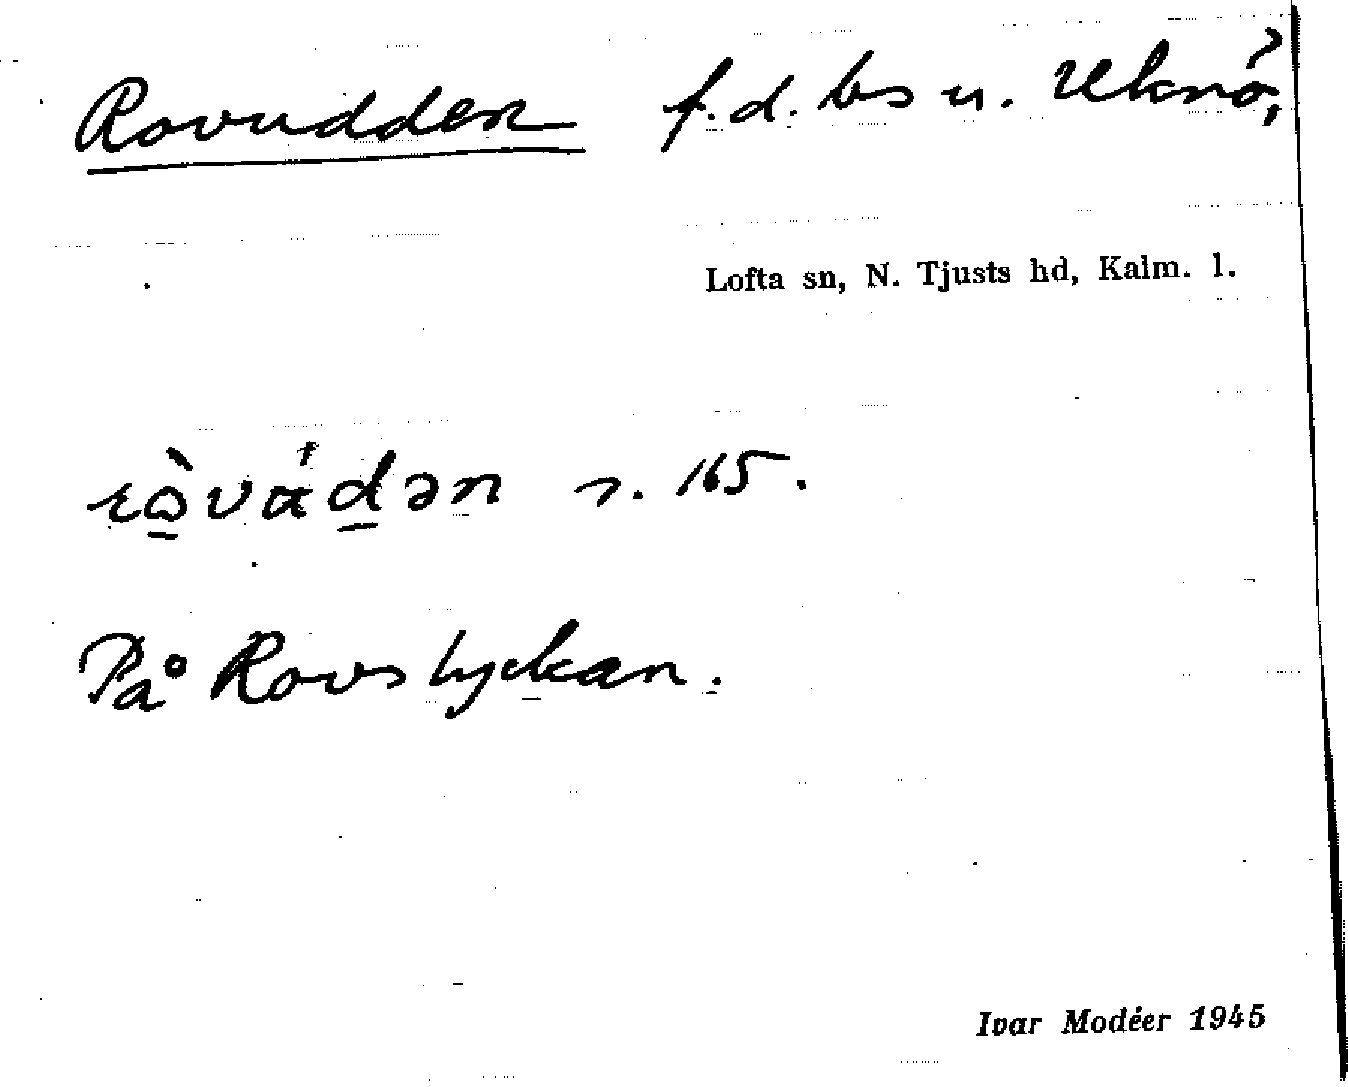 Rovudden f.d. bs u. Uknö,
Lofta sn, N. Tjusts hd, Kalm. l.
s. 165.
På Rovslyckan.
Ivar Modéer 1945